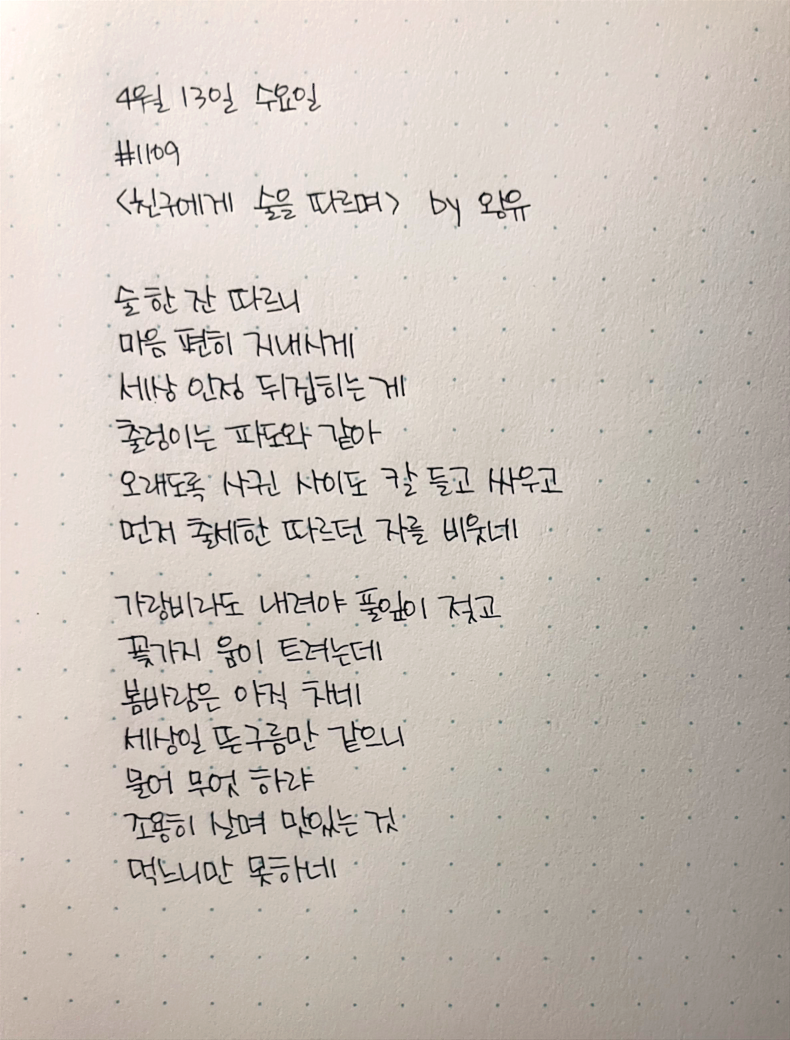 4월 13일 수요일
#1109
<친구에게 술을 따르며> by 왕유
술 한 잔 따르니
마음 편히 지내시게
세상 인정 뒤집히는 게
출렁이는 파도와 같아
오래도록 사귄 사이도 칼 들고 싸우고
먼저 출세한 따르던 자를 비웃네
가랑비라도 내려야 풀잎이 젖고
꽃가지 움이 트려는데
봄바람은 아직 차네
세상일 뜬구름만 같으니
물어 무엇 하랴
조용히 살며 맛있는 것
먹느니만 못하네